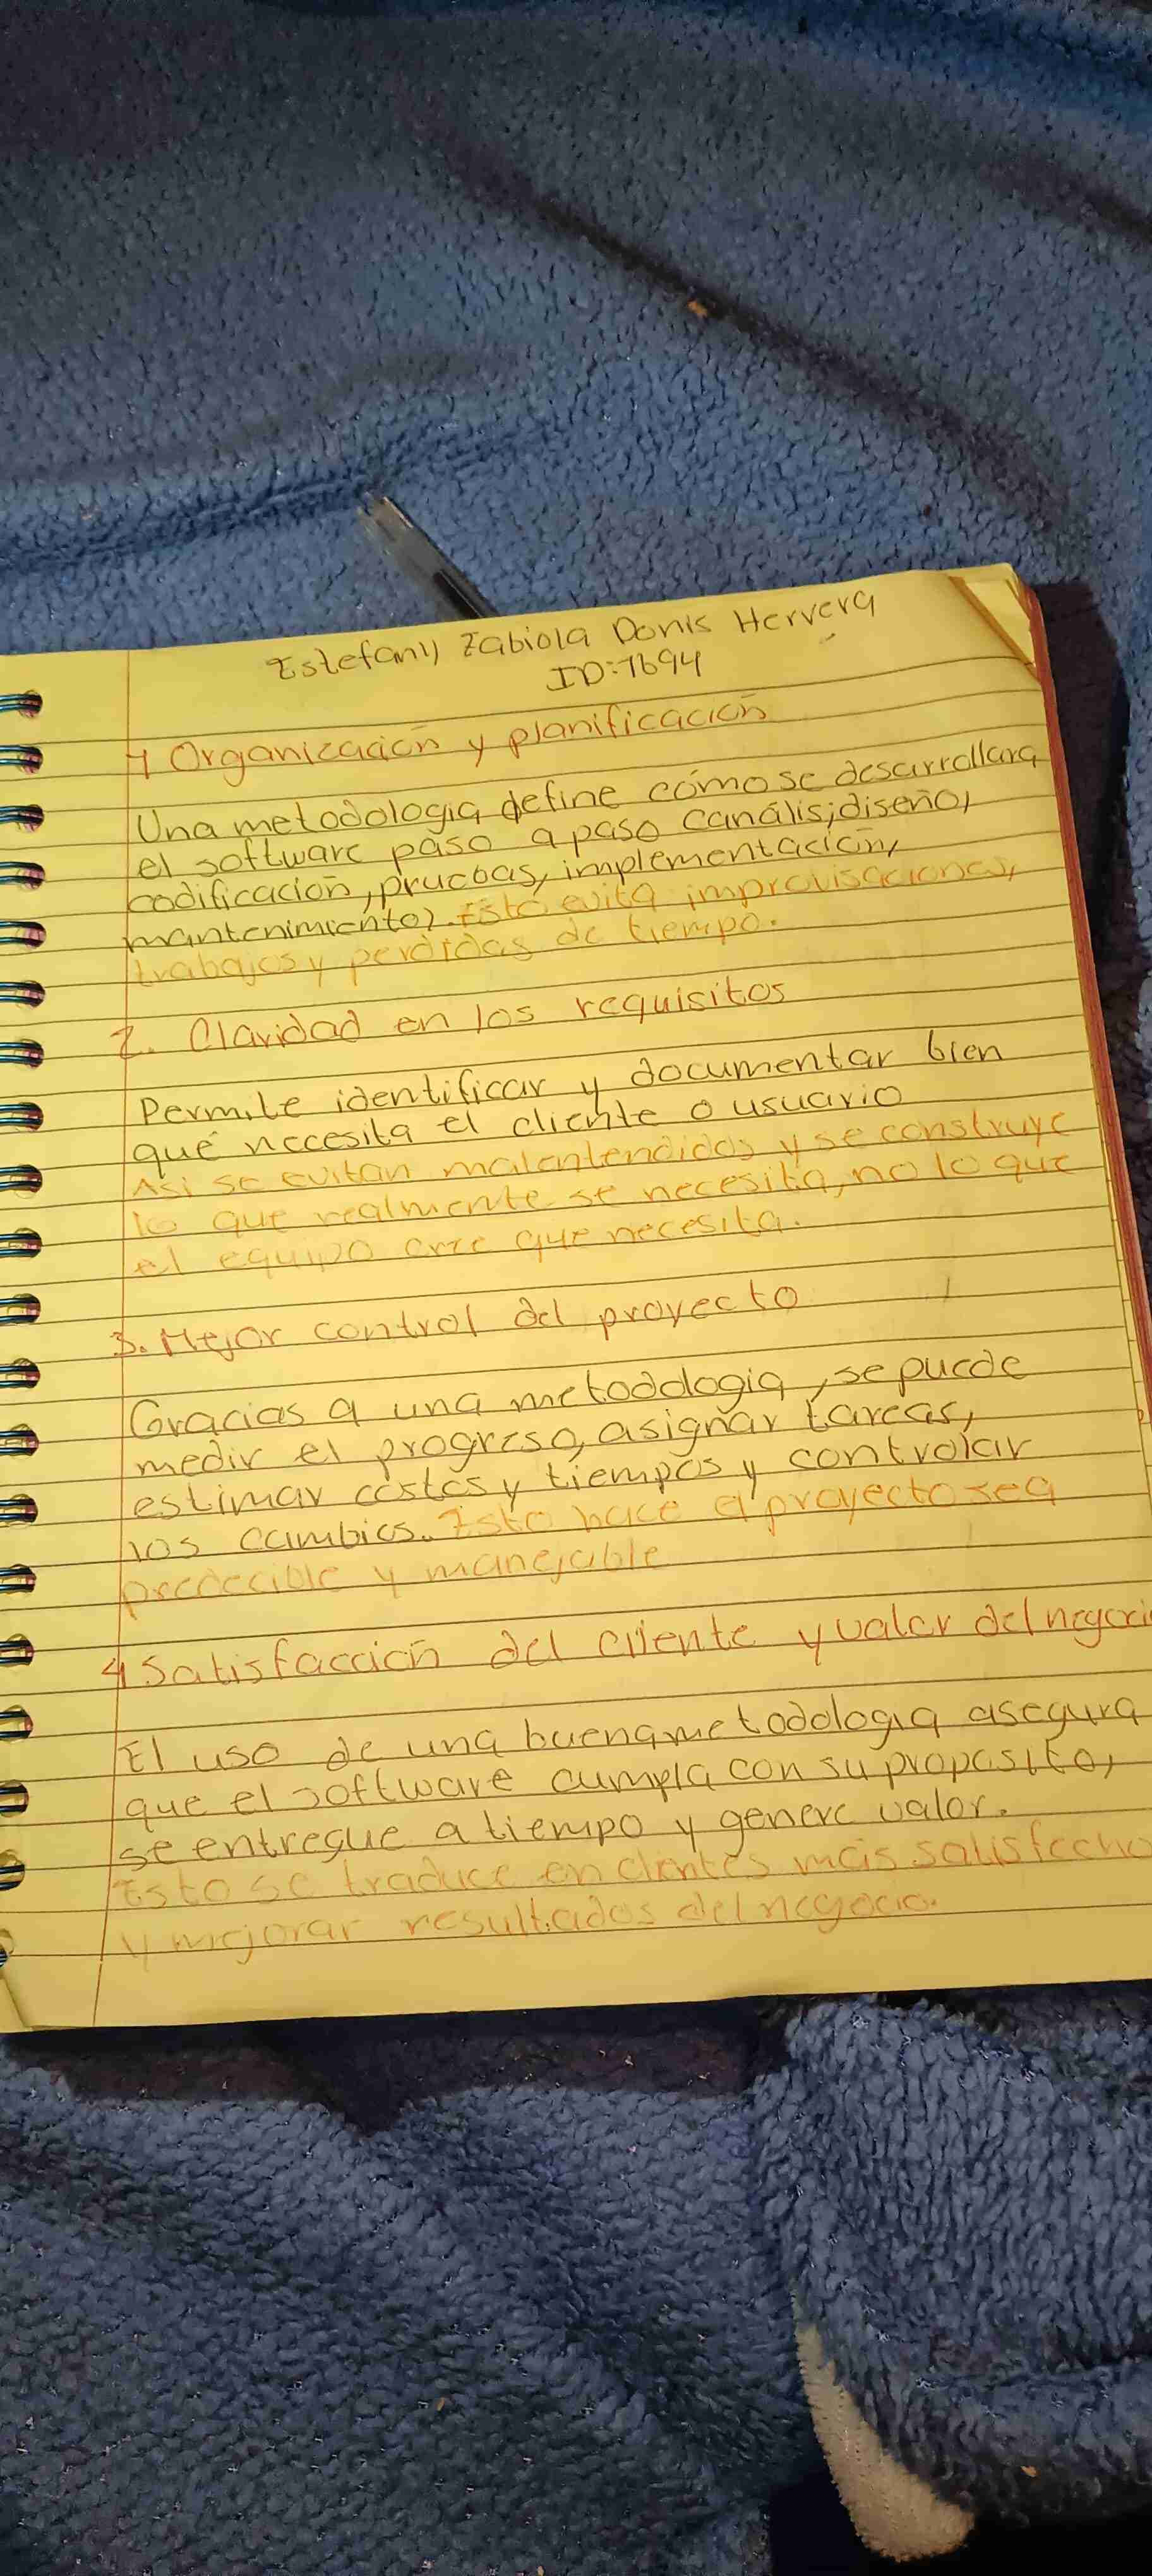 Estefany Fabiola Donis Herrera
ID:7694
1 Organización y planificación
Una metodologia define cómo se desarrollara
el software paso a paso (análisis, diseño,
codificación, pruebas, implementación,
mantenimiento). Esto evita improvisaciones,
trabajos y perdidas de tiempo.
2. Claridad en los requisitos
Permite identificar y documentar bien
qué necesita el cliente o usuario
Asi se evitan malentendidos y se construye
lo que realmente se necesita, no lo que
el equipo cree que necesita.
3. Mejor control del proyecto
Gracias a una metodologia, se puede
medir el progreso, asignar tareas,
estimar costos y tiempos y controlar
los cambios. Esto hace el proyecto sea
predecible y manejable
4 Satisfacción del cliente y valor del negoci
El uso de una buena metodologia asegura
que el software cumpla con su proposito,
se entregue a tiempo y genere valor.
Esto se traduce en clientes más satisfecho
y mejorar resultados del negocio.